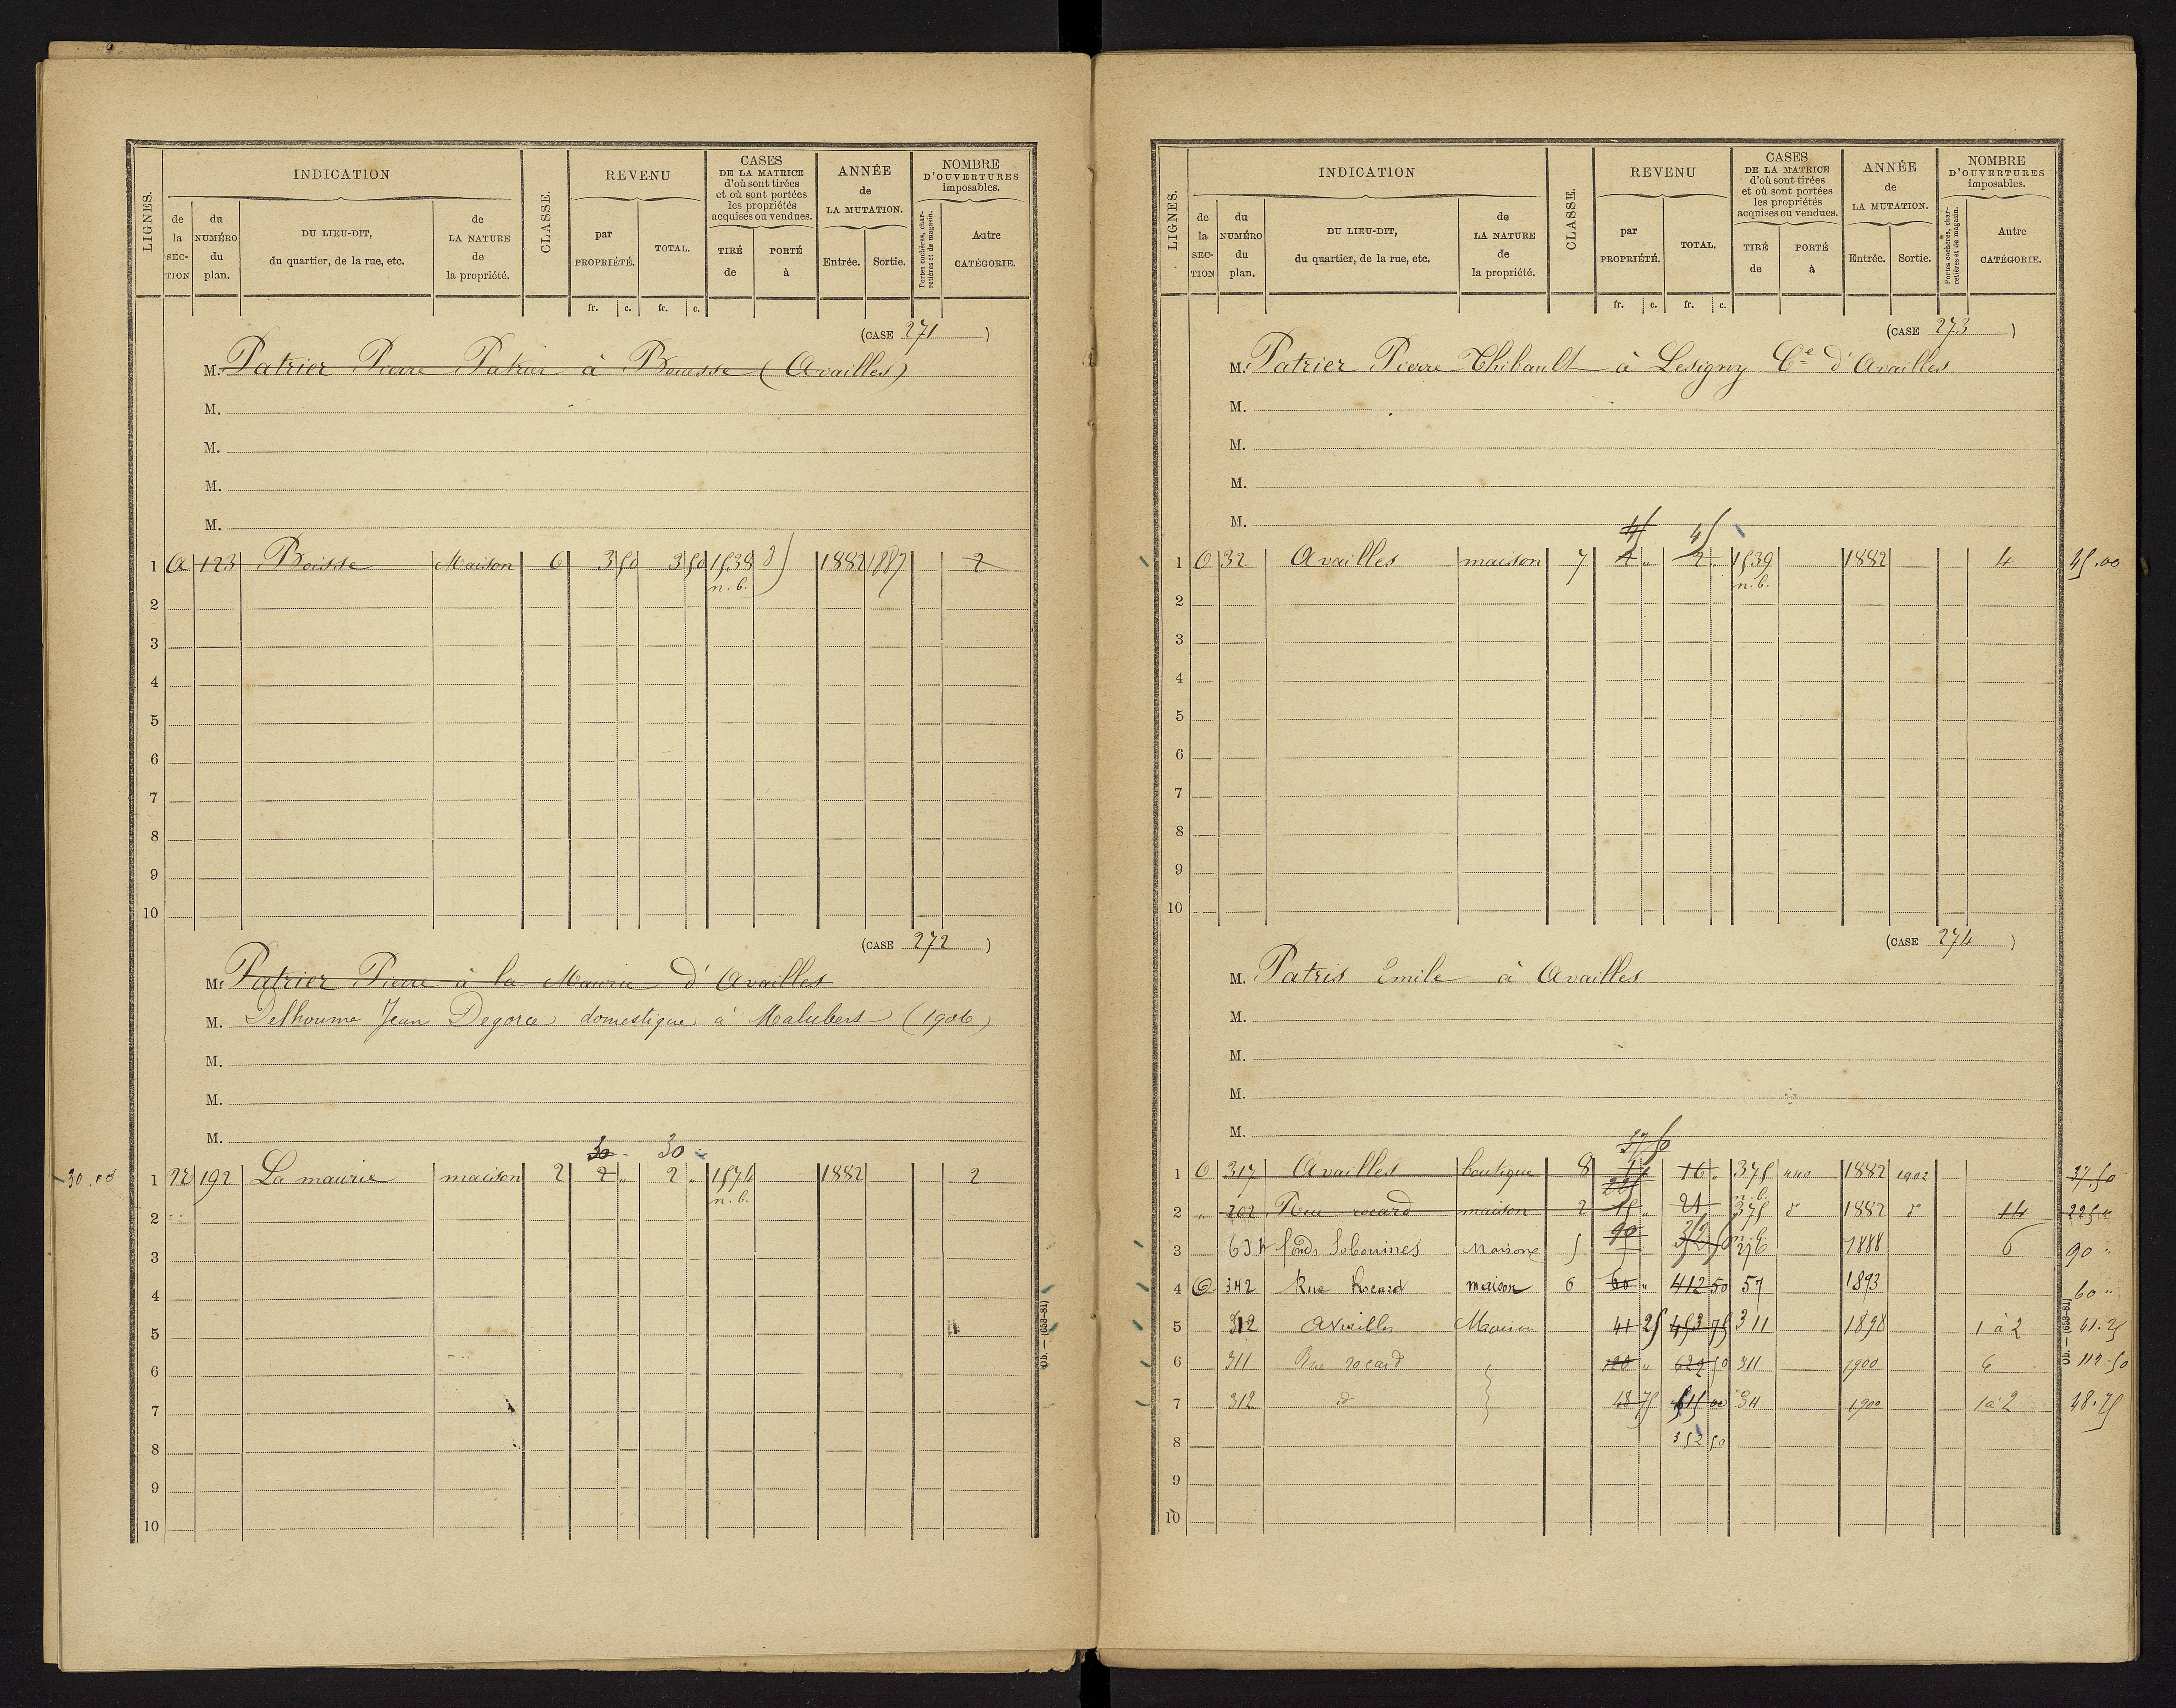 LIGNES.
INDICATION
CLASSE.
REVENU
CASES
DE LA MATRICE
d'où sont tirées
et où sont portées
les propriétés
acquises ou vendues.
ANNÉE
de
LA MUTATION.
NOMBRE
D'OUVERTURES
imposables.
de la SECTION
du NUMÉRO du plan.
DU LIEU-DIT,
du quartier, de la rue, etc.
de LA NATURE de la propriété.
par PROPRIÉTÉ.
TOTAL.
TIRÉ de
PORTÉ à
Entrée.
Sortie.
Portes cochères, charretières et de magasin.
Autre CATÉGORIE.
fr. c. fr. c.
(CASE 271)
M. Patrier Pierre Patrier à Bouesse (Availles)
M.
M.
M.
M.
1 A 123 Boisse Maison 6 3 50 3 50 1538 1882 1887 2
n.b.
2
3
4
5
6
7
8
9
10
(CASE 272)
M. Patrier Pierre à la Maurie d'Availles
M. Delhoume Jean Degorce domestique à Malubert (1906)
M.
M.
M.
30 30
30.00 1 192 La maurie maison 2 2 " 2 " 1574 1882 2
n.b.
2
3
4
5
6
7
8
9
10
Ob. — (653-81)
LIGNES.
INDICATION
CLASSE.
REVENU
CASES
DE LA MATRICE
d'où sont tirées
et où sont portées
les propriétés
acquises ou vendues.
ANNÉE
de
LA MUTATION.
NOMBRE
D'OUVERTURES
imposables.
de la SECTION
du NUMÉRO du plan.
DU LIEU-DIT,
du quartier, de la rue, etc.
de LA NATURE de la propriété.
par PROPRIÉTÉ.
TOTAL.
TIRÉ de
PORTÉ à
Entrée.
Sortie.
Portes cochères, charretières et de magasin.
Autre CATÉGORIE.
fr. c. fr. c.
(CASE 273)
M. Patrier Pierre Thibault à Lesigny Cne d'Availles
M.
M.
M.
M.
45 45
1 O 32 Availles maison 7 2 " 2 " 1539 1882 4 45.00
n.b.
2
3
4
5
6
7
8
9
10
(CASE 274)
M. Patris Emile à Availles
M.
M.
M.
M.
37 50
1 O 317 Availles boutique 8 16 " 375 440 1882 1902 37.50
225 n.b.
2 " 202 Rue rocard maison 2 15 " 21 375 d° 1882 d° 14 225 "
3 fonds Maison 5 90 1888 6 90 "
4 O 342 Rue Rocard maison 6 60 " 412 50 57 1893 60 "
5 312 Availles Maison 41 25 453 75 311 1898 1 à 2 41.25
6 311 Rue rocard " 120 " 50 311 1900 6 112.50
7 312 d° 18 75 00 311 1900 1 à 2 18.75
8 352 50
9
10
Ob. — (653-81)